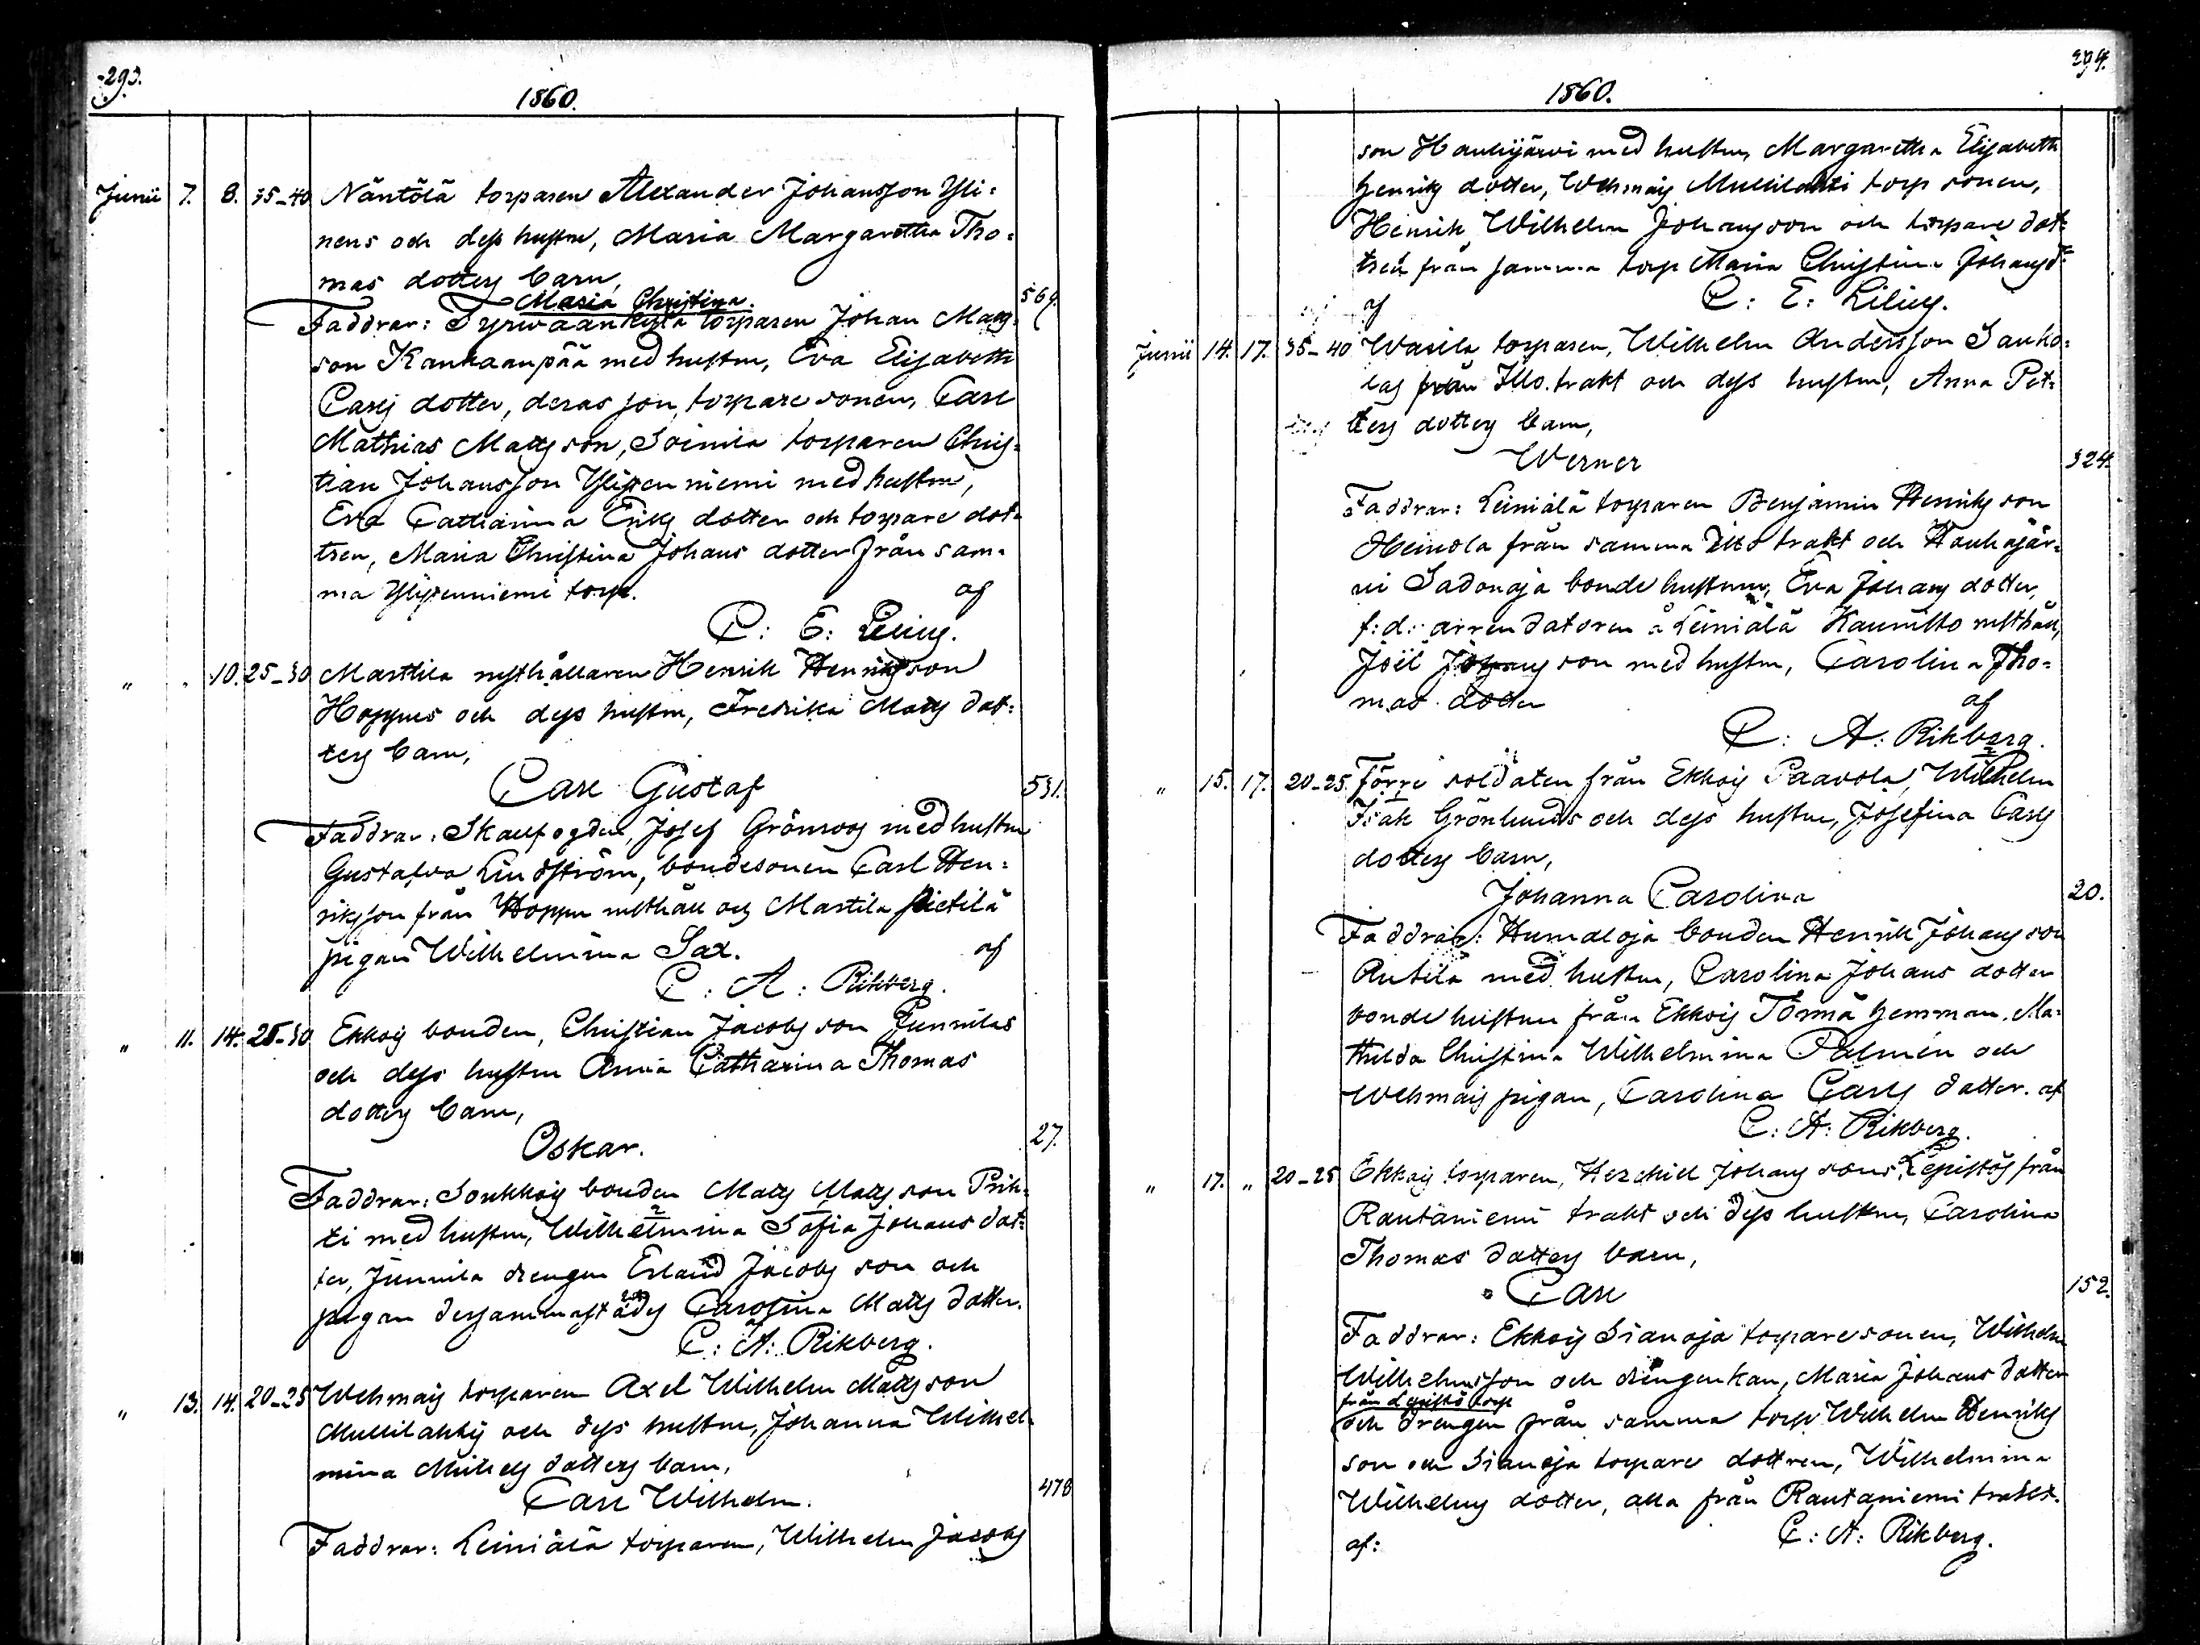 293.
1860.
Junii 7. 8. 35-40 Näntölä torparen Alexander Johansson Yli-
nens och dess hustru, Maria Margaretha Tho-
mas dotters barn,
Maria Christina. 569.
Faddrar: Tyrwäänkylä torparen Johan Mats-
son Kankaanpää med hustru, Eva Elisabeth
Carls dotter, deras son, torpare sonen, Carl
Mathias Matts son, Soinila torparen Chris-
tian Johansson Ylipenniemi med hustru,
Eva Catharina Eriks dotter och torpare dot-
tren, Maria Christina Johans dotter från sam-
ma Ylipenniemi torp. af
C: E: Lilius.
" " 10. 25-30 Marttila rusthållaren Henrik Henriksson
Hoppus och dess hustru, Fredrika Matts dot-
ters barn,
Carl Gustaf 531.
Faddrar: Skallfogden, Josef Grönroos med hustru
Gustafva Lindström, bondesonen Carl Hen-
riksson från Hoppu rusthåll och Martila Pietilä
pigan Wilhelmina Sax. af
C: A: Rikberg.
" 11. 14. 25-30 Ekkois bonden, Christian Jacobs son Junnilas
och dess hustru Anna Catharina Thomas
dotters barn,
Oskar. 27.
Faddrar: Sonkkois bonden Matts Matts son Prih-
ti med hustru, Wilhelmina Sofia Johans dot-
ter, Junnila drengen Erland Jacobs son och
pigan dersammastädes Carolina Matts dotter.
af C: A: Rikberg.
" 13. 14. 20-25 Wehmais torparen Axel Wilhelm Matts son
Mullilahtis och dess hustru, Johanna Wilhel-
mina Michels dotters barn,
Carl Wilhelm. 478
Faddrar: Leiniälä torparen, Wilhelm Jacobs
294.
1860.
son Haukijärvi med hustru, Margaretha Elisabeth
Henriks dotter, Wehmais Mullilahti torp sonen,
Henrik Wilhelm Johansson och torpare dot-
tren från samma torp Maria Christina Johansd:r
af C: E: Lilius.
Junii 14. 17. 35-40 Warila torparen, Wilhelm Andersson Sauko-
las från Illo trakt och dess hustru, Anna Pet-
ters dotters barn,
Werner 324.
Faddrar: Leiniälä torparen Benjamin Henriks son
Heinola från samma Illo trakt och Houhajär-
vi Sadonoja bonde hustrun, Eva Johans dotter,
f:d: arrendatoren å Leiniälä Kaunisto rusthåll,
Joël Johans son med hustru, Carolina Tho-
mas dotter af
C: A: Rikberg.
" 15. 17. 20-25. Förre soldaten från Ekkois Paavola, Wilhelm
Isak Grönlunds och dess hustru, Josefina Carls
dotters barn,
Johanna Carolina 20.
Faddrar: Humaloja bonden Henrik Johans son
Antila med hustru, Carolina Johans dotter
bonde hustrun från Ekkois Tömä hemman, Ma-
thilda Christina Wilhelmina Palmén och
Wehmais pigan, Carolina Carls dotter. af
C: A: Rikberg.
" 17. " 20-25 Ekkois torparen, Hezekiel Johans sons Lepistös från
Rautaniemi trakt och dess hustru, Carolina
Thomas dotters barn,
Carl 152.
Faddrar: Ekkois Sianoja torparesonen, Wilhelm
Wilhelmsson och drengenkan, Maria Johans dotter
från Lepistö torp
och drengen från samma torp Wilhelm Henriks
son och Sianoja torpare dottren, Wilhelmina
Wilhelms dotter, alla från Rautaniemi trakt.
af: C: A: Rikberg.